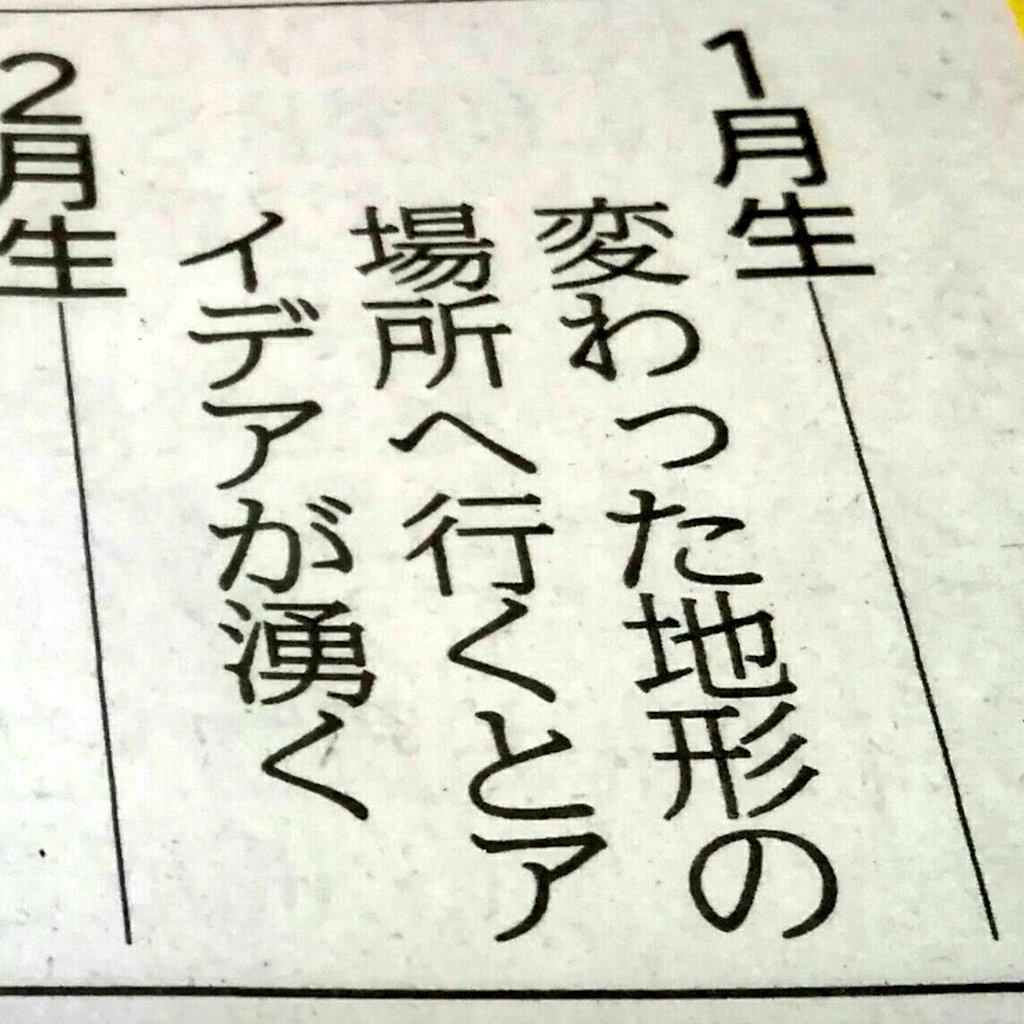 1月生
変わった地形の
場所へ行くとア
イデアが湧く
2月生